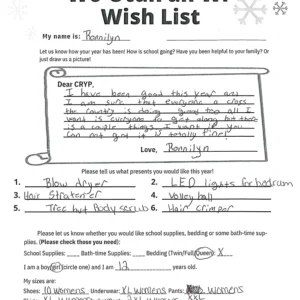 Wish List
My name is: Ronnilyn
Let us know how your year has been! How is school going? Have you been helpful to your family? Or
just draw us a picture!
Dear CRYP,
I have been good this ans
I am sure that everyone a cross
the country is doing good too all I
want is everyone to get along but there
is a couple things I want if you
Can not get it is totally fine!
Love, Ronnilyn
Please tell us what presents you would like this year!
1. Blow dryer 2. LED lights for bedroom
3. Hair Stratener 4. Volley ball
5. Tree hut Body scrub 6. Hair crimper
Please let us know whether you would like school supplies, bedding or some bath-time sup-
plies. (Please check those you need):
School Supplies: Bath-time Supplies: Bedding (Twin/Full/Queen) X
I am a boy/girl (circle one) and I am 12 years old.
My sizes are:
Shoes: 10 womens Underwear: XL womens Pants: womens
XXL